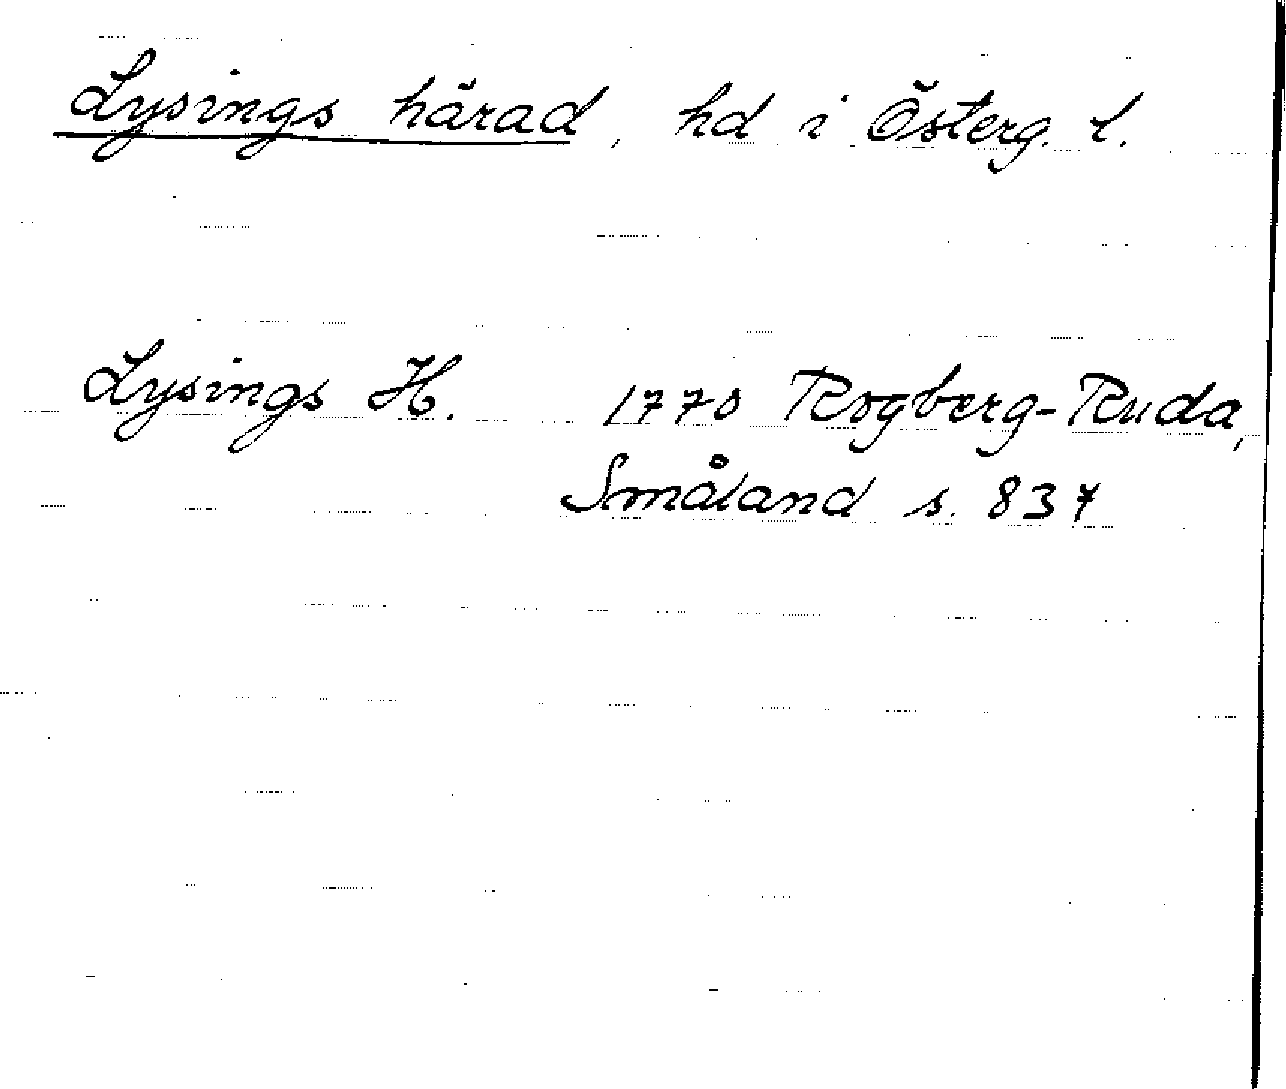 Lysings härad, hd i Österg. l.
Lysings H. 1770 Rogberg-Ruda,
Småland s. 837